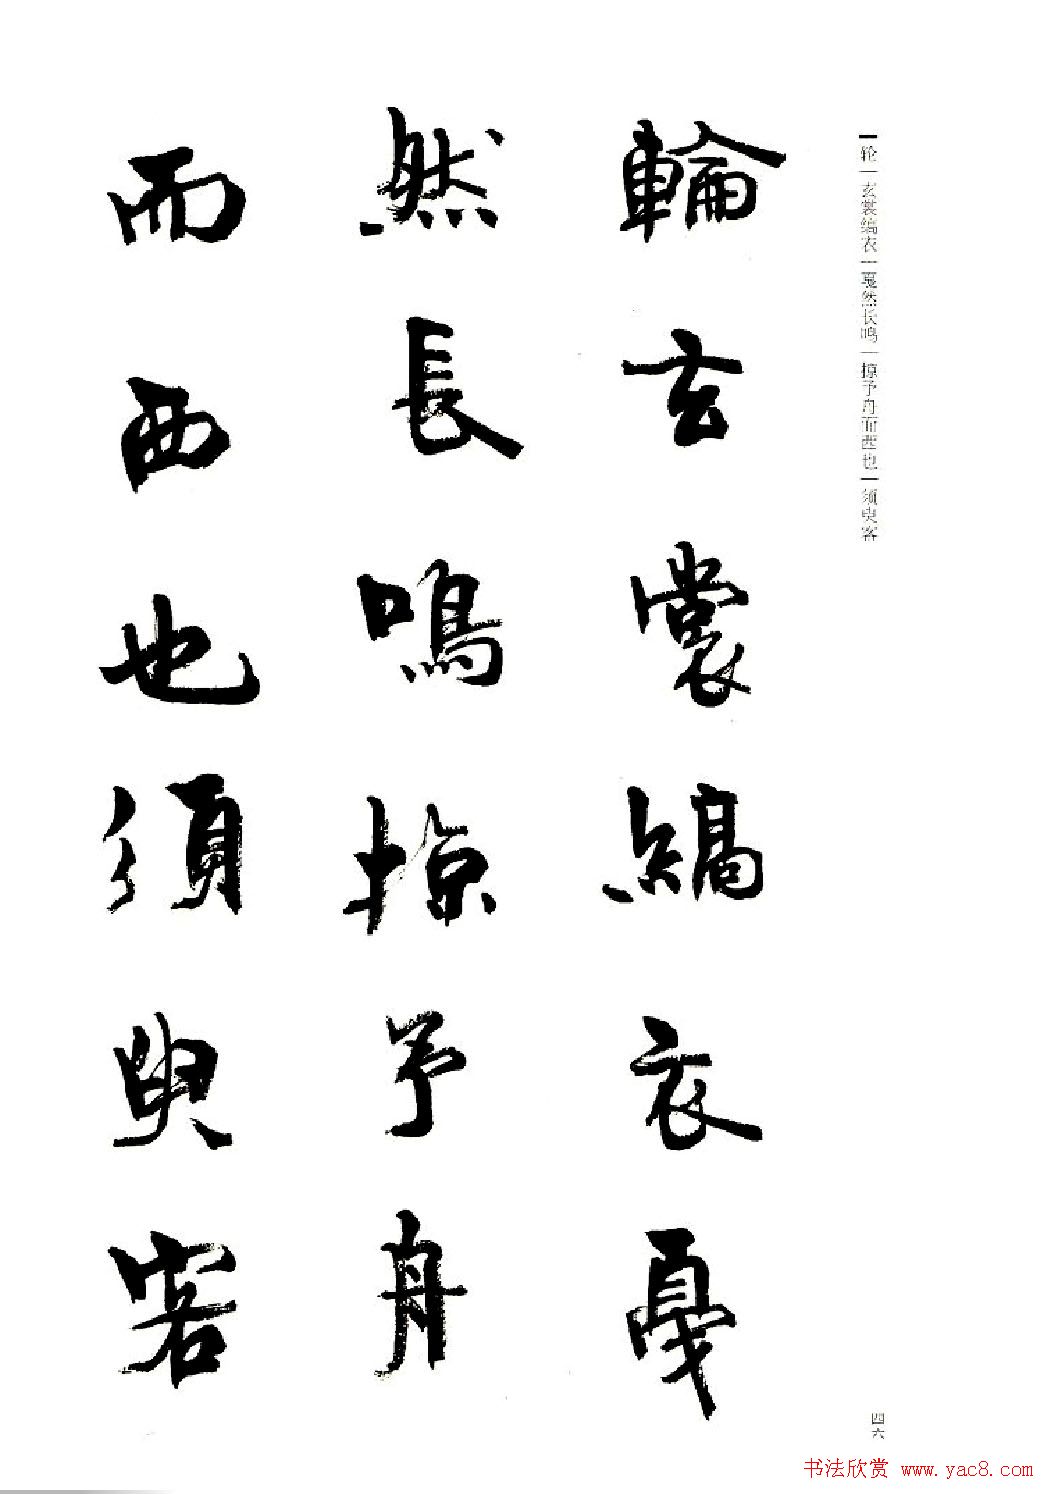 轮 玄裳缟衣 戛然长鸣 掠予舟而西也 须臾客
輪玄裳縞衣戛
然長鳴掠予舟
而西也須臾客
四六
书法欣赏 www.yac8.com